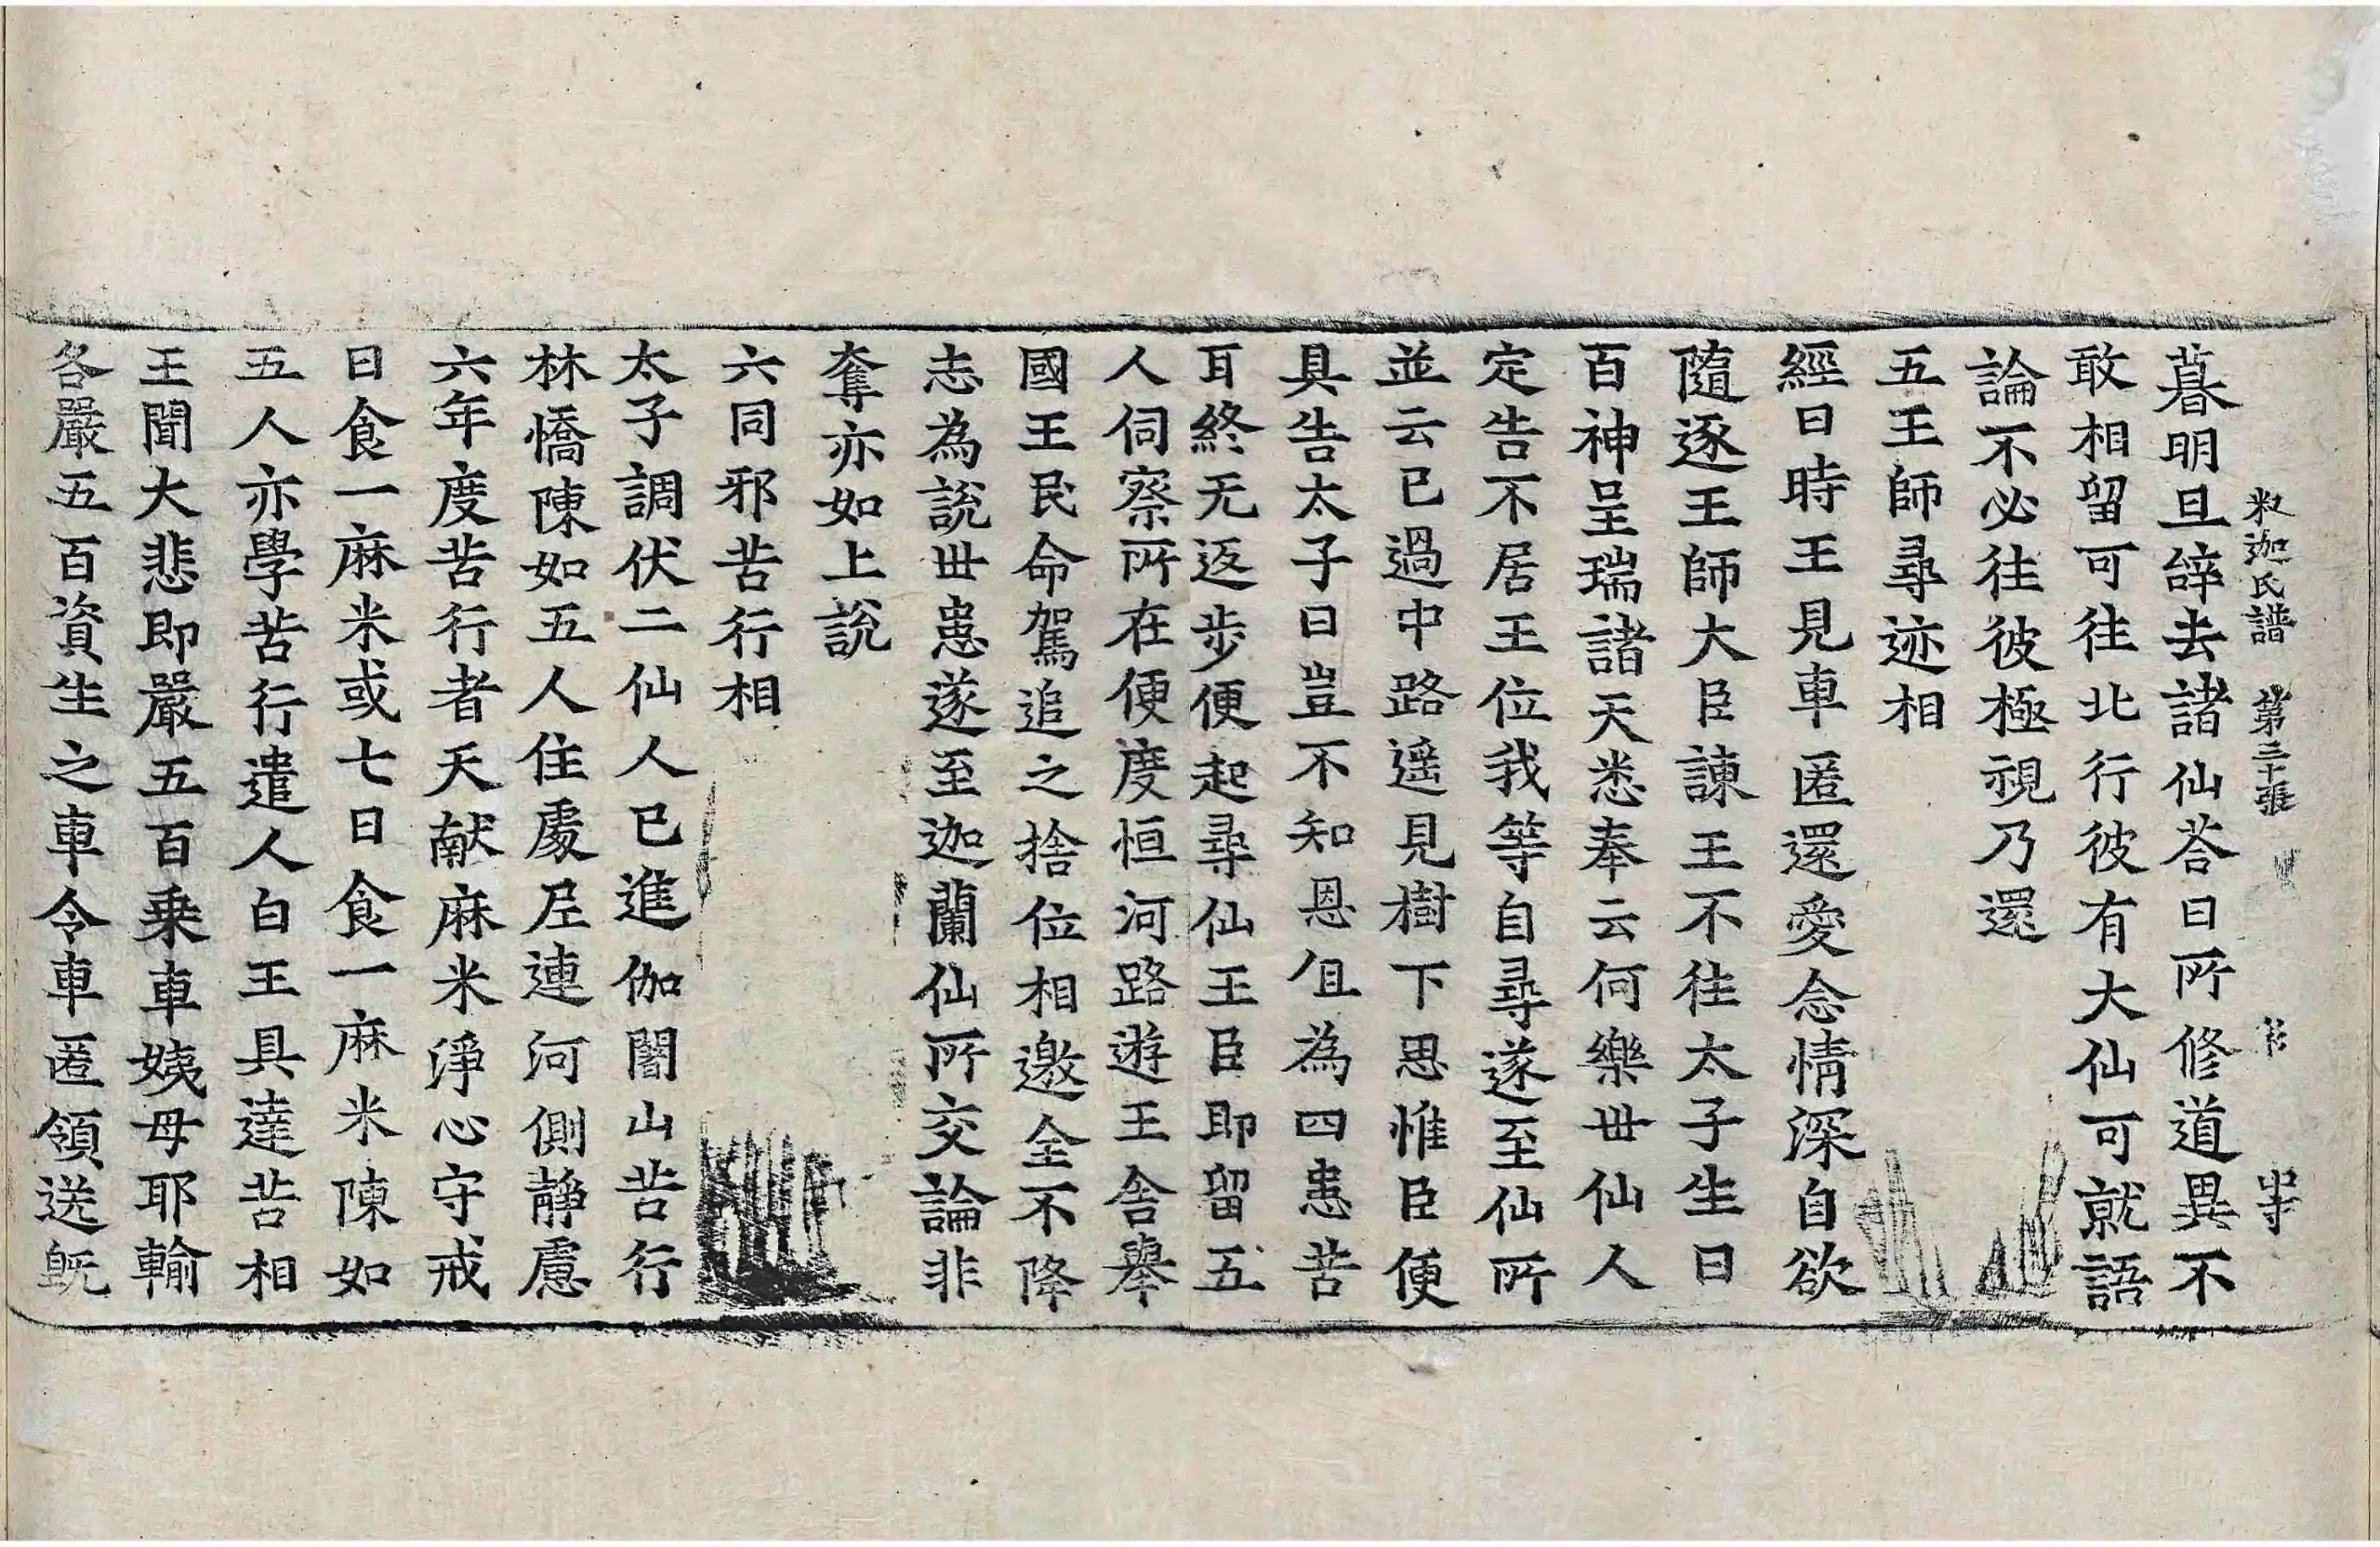 釈迦氏譜 第三十張 岀寺
暮明旦辝去諸仙荅曰所修道異不
敢相留可往北行彼有大仙可就語
論不必往彼極視乃還
五王師尋迹相
經曰時王見車匿還愛念情深自欲
隨逐王師大臣諫王不往太子生日
百神呈瑞諸天悉奉云何樂世仙人
定告不居王位我等自尋遂至仙所
並云已過中路遥見樹下思惟臣便
具告太子曰豈不知恩但為四患苦
耳終无返步便起尋仙王臣即留五
人伺察所在便度恒河路遊王舍舉
國王民命駕追之捨位相邀全不降
志為說世患遂至迦蘭仙所交論非
奪亦如上說
六同邪苦行相
太子調伏二仙人已進伽闍山苦行
林憍陳如五人住處尼連河側靜慮
六年度苦行者天献麻米淨心守戒
日食一麻米或七日食一麻米陳如
五人亦學苦行遣人白王具達苦相
王聞大悲即嚴五百乗車姨母耶輸
各嚴五百資生之車令車匿領送旣